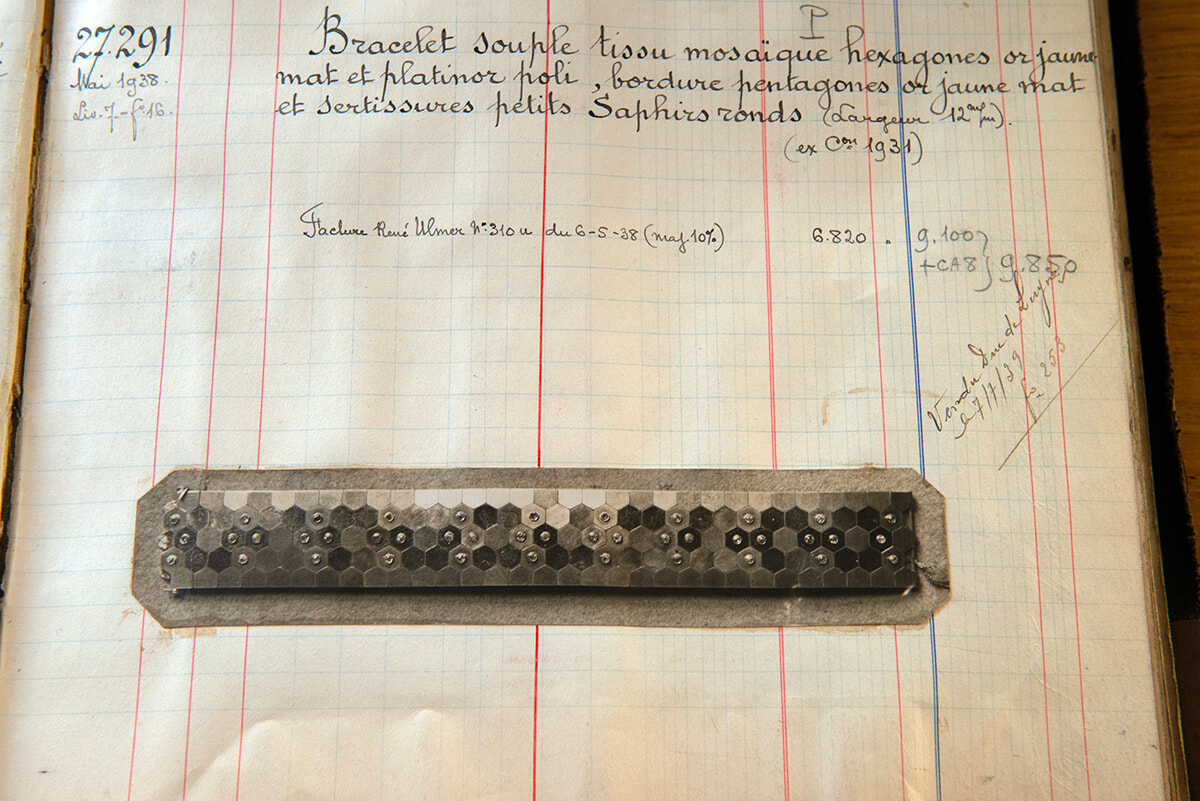 P
27.291
Bracelet souple tissu mosaïque hexagones or jaune
Mai 1938.
mat et platinor poli, bordure pentagones or jaune mat
Liv. 7 - fo. 16.
et sertissures petits Saphirs ronds (Largeur 12 m/m).
(ex Con 1931)
Facture René Ulmer No 310 u du 6-5-38 (maj. 10%) 6.820 " 9.100
+CA8 } 9.850
Vendu Duc de
le 7/7/39
fo 253